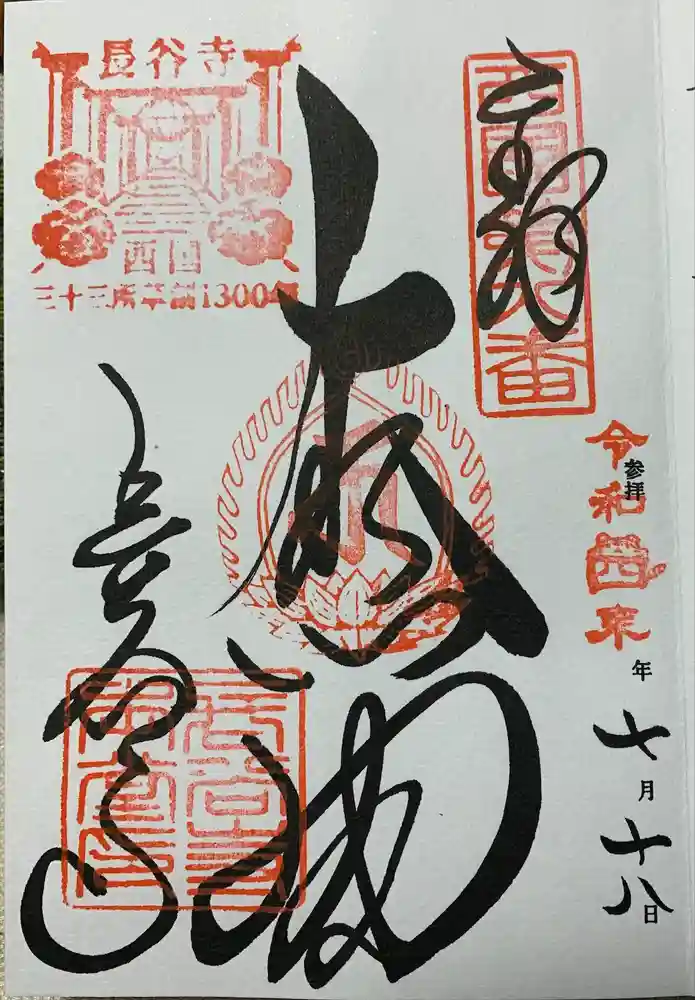 長谷寺
西国
三十三所草創1300年
奉拝
西国第八番
大悲閣
長谷寺
参拝
令和四年
年
七月
十八日